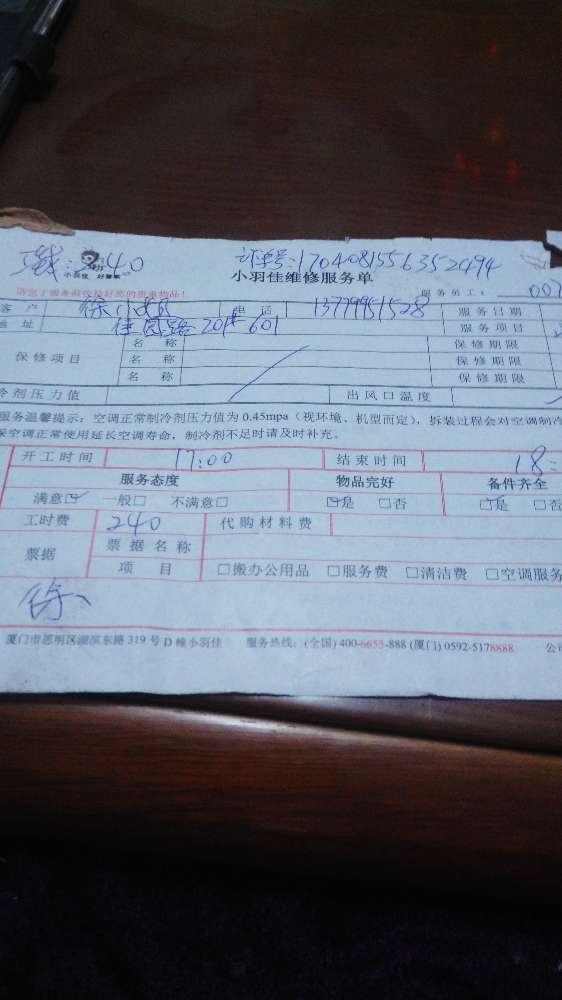 订单号:1704081556352494
小羽佳 好管家
小羽佳维修服务单
服务员工: 007
客 户 徐小姐 电 话 13779951528 服务日期
地 址 佳园路201# 601 服务项目
保修项目 名 称 保修期限
名 称 保修期限
名 称 保修期限
冷剂压力值 出风口温度
服务温馨提示:空调正常制冷剂压力值为0.45mpa(视环境、机型而定),拆装过程会对空调制冷
保空调正常使用延长空调寿命,制冷剂不足时请及时补充。
开工时间 17:00 结束时间 18:
服务态度 物品完好 备件齐全
满意☑ 一般□ 不满意□ ☑是 □否 ☑是 □否
工时费 240 代购材料费
票据 票据名称
项 目 □搬办公用品 □服务费 □清洁费 □空调服务
徐
厦门市思明区湖滨东路319号D幢小羽佳 服务热线:(全国)400-6655-888 (厦门)0592-5178888 公司